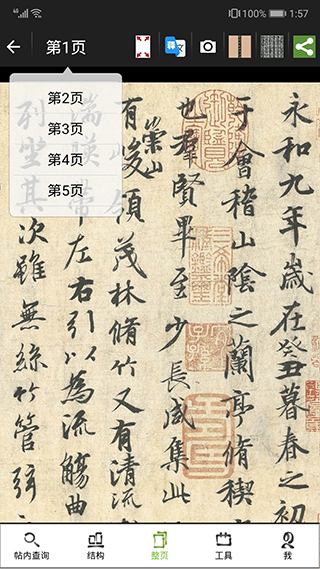 4G 89% 1:57
第1页
第2页
第3页
第4页
第5页
永和九年歲在癸丑暮春之初
于會稽山陰之蘭亭脩稧
也羣賢畢至少長咸集此
有崇山峻領茂林脩竹又有清流
湍暎帶左右引以為流觴曲
列坐其次雖無絲竹管弦
帖内查询
结构
整页
工具
我